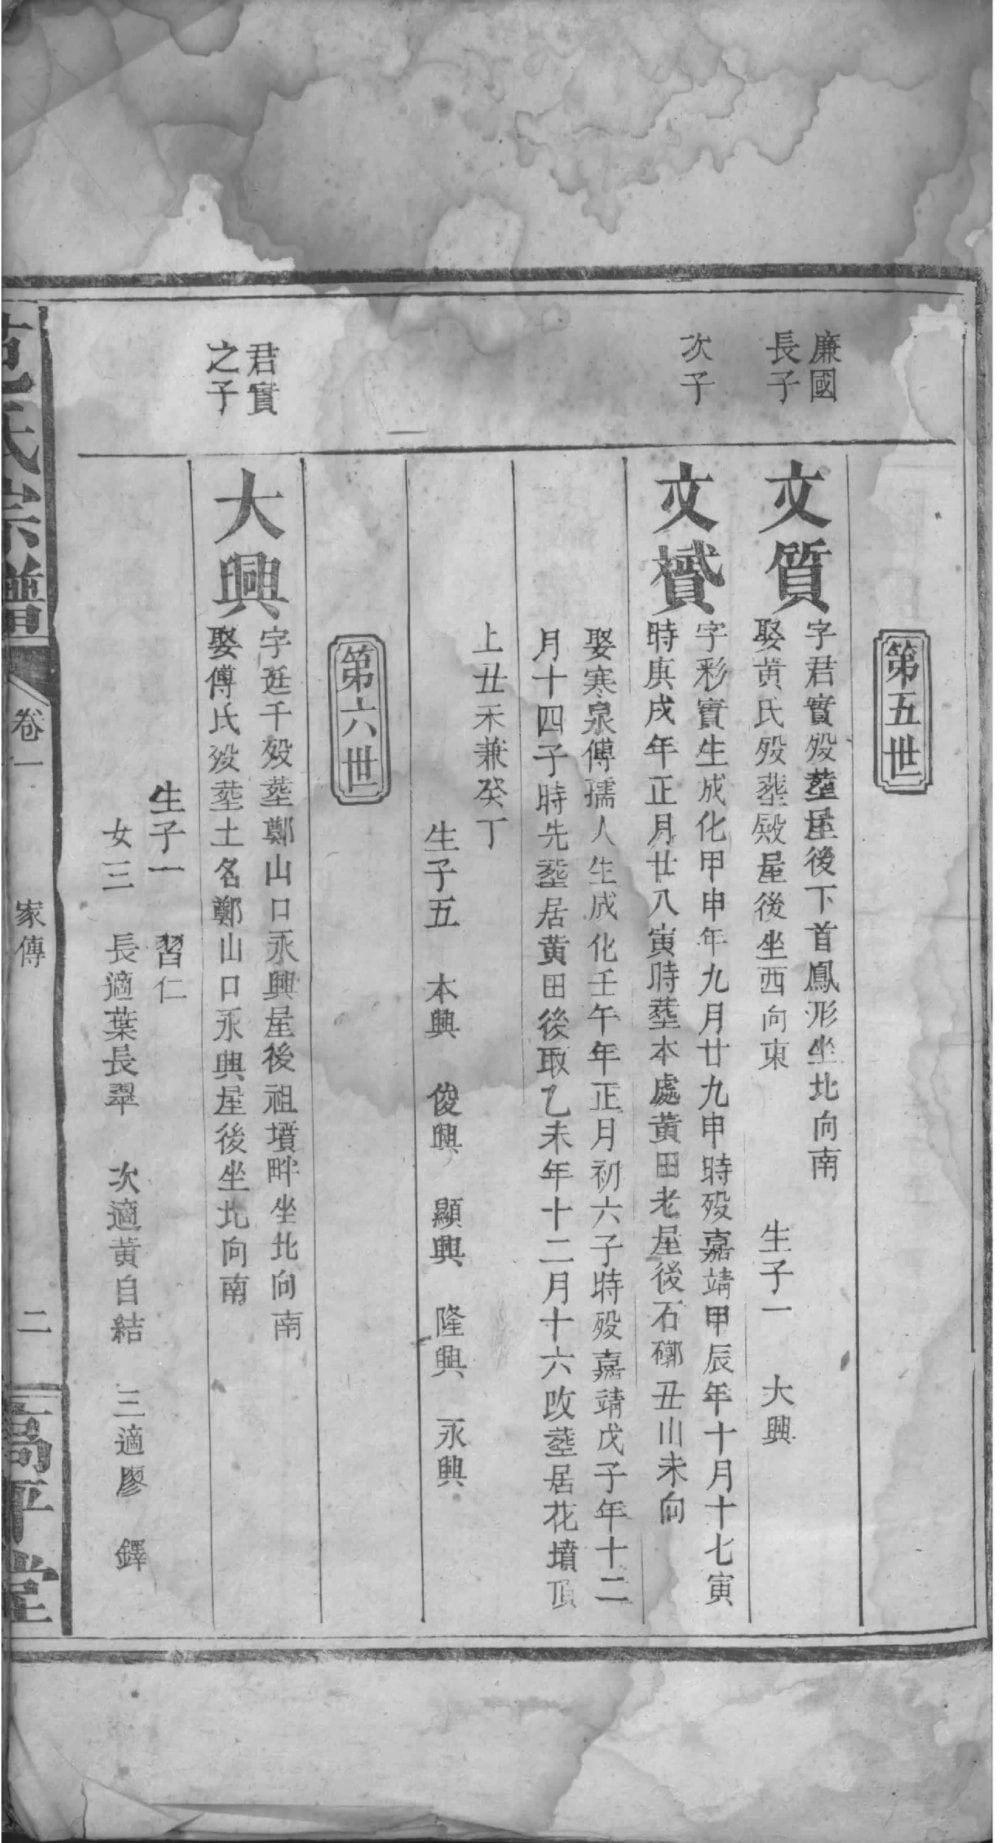 第五世
廉國
長子
文質
字君實歿塟屋後下首鳳形坐北向南
娶黄氏歿塟殿屋後坐西向東 生子一 大興
次子
文贇
字彩實生成化甲申年九月廿九申時歿嘉靖甲辰年十月十七寅
時庚戌年正月廿八寅時塟本處黄田老屋後石磜丑山未向
娶寒泉傅孺人生成化壬午年正月初六子時歿嘉靖戊子年十二
月十四子時先塟居黄田後取乙未年十二月十六改塟居花墳頂
上丑未兼癸丁
生子五 本興 俊興 顯興 隆興 永興
第六世
君實
之子
大興
字廷千歿塟鄭山口永興屋後祖墳畔坐北向南
娶傅氏歿塟土名鄭山口永興屋後坐北向南
生子一 習仁
女三 長適葉長翠 次適黄自結 三適廖 鐸
范氏宗譜 卷一 家傳 二 高平堂